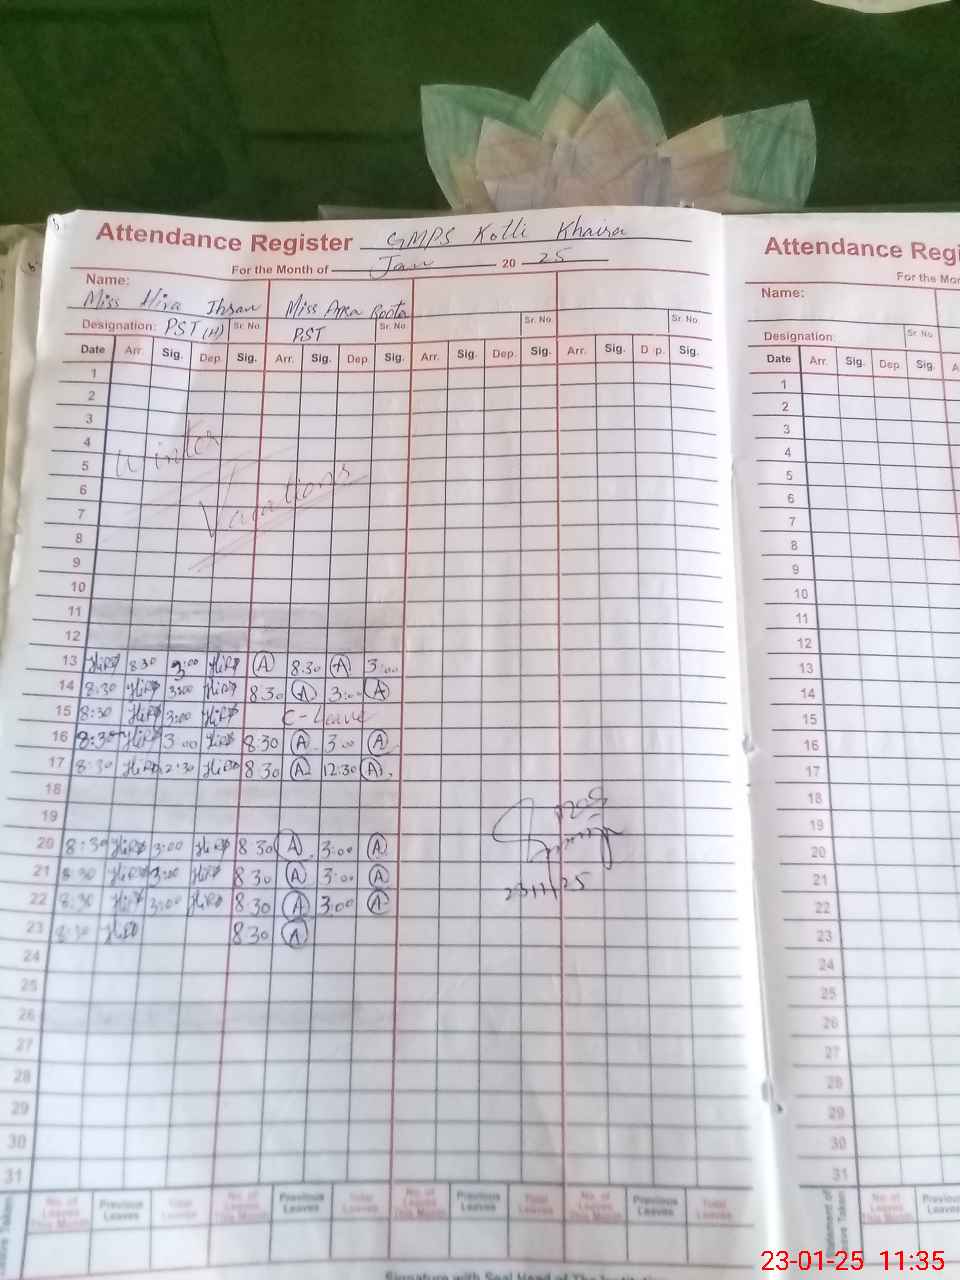 Attendance Register GMPS Kotli Khaira
For the Month of Jan 20 25
Name:
Miss Hira Ihsan Miss Roota
Designation: PST (H) Sr. No. PST Sr. No. Sr. No. Sr. No.
Date Arr. Sig. Dep. Sig. Arr. Sig. Dep. Sig. Arr. Sig. Dep. Sig. Arr. Sig. D p. Sig.
1
2
3
4
5
6
7
8
9
10
11
12
Winter
Vacations
13 Hira 8:30 3:00 Hira A 8.30 A 3:00
14 8:30 Hira 3:00 Hira 8.30 A 3:00 A
15 8:30 Hira 3:00 Hira C-Leave
16 8:30 Hira 3:00 Hira 8:30 A 3:00 A
17 8:30 Hira 12:30 Hira 8:30 A 12:30 A
18
19
20 8:30 Hira 3:00 Hira 8:30 A 3:00 A
21 8:30 Hira 3:00 Hira 8:30 A 3:00 A
22 8:30 Hira 3:00 Hira 8:30 A 3:00 A
23 8:30 Hira 8:30 A
23/1/25
24
25
26
27
28
29
30
31
No. of Leaves This Month Previous Leaves Total Leaves No. of Leaves This Month Previous Leaves Total Leaves No. of Leaves This Month Previous Leaves Total Leaves No. of Leaves This Month Previous Leaves Total Leaves
Signature with Seal Head of The
Attendance Regi
For the Mon
Name:
Designation: Sr. No.
Date Arr. Sig. Dep. Sig. A
1
2
3
4
5
6
7
8
9
10
11
12
13
14
15
16
17
18
19
20
21
22
23
24
25
26
27
28
29
30
31
No. of Leaves This Month Previous Leaves
23-01-25 11:35